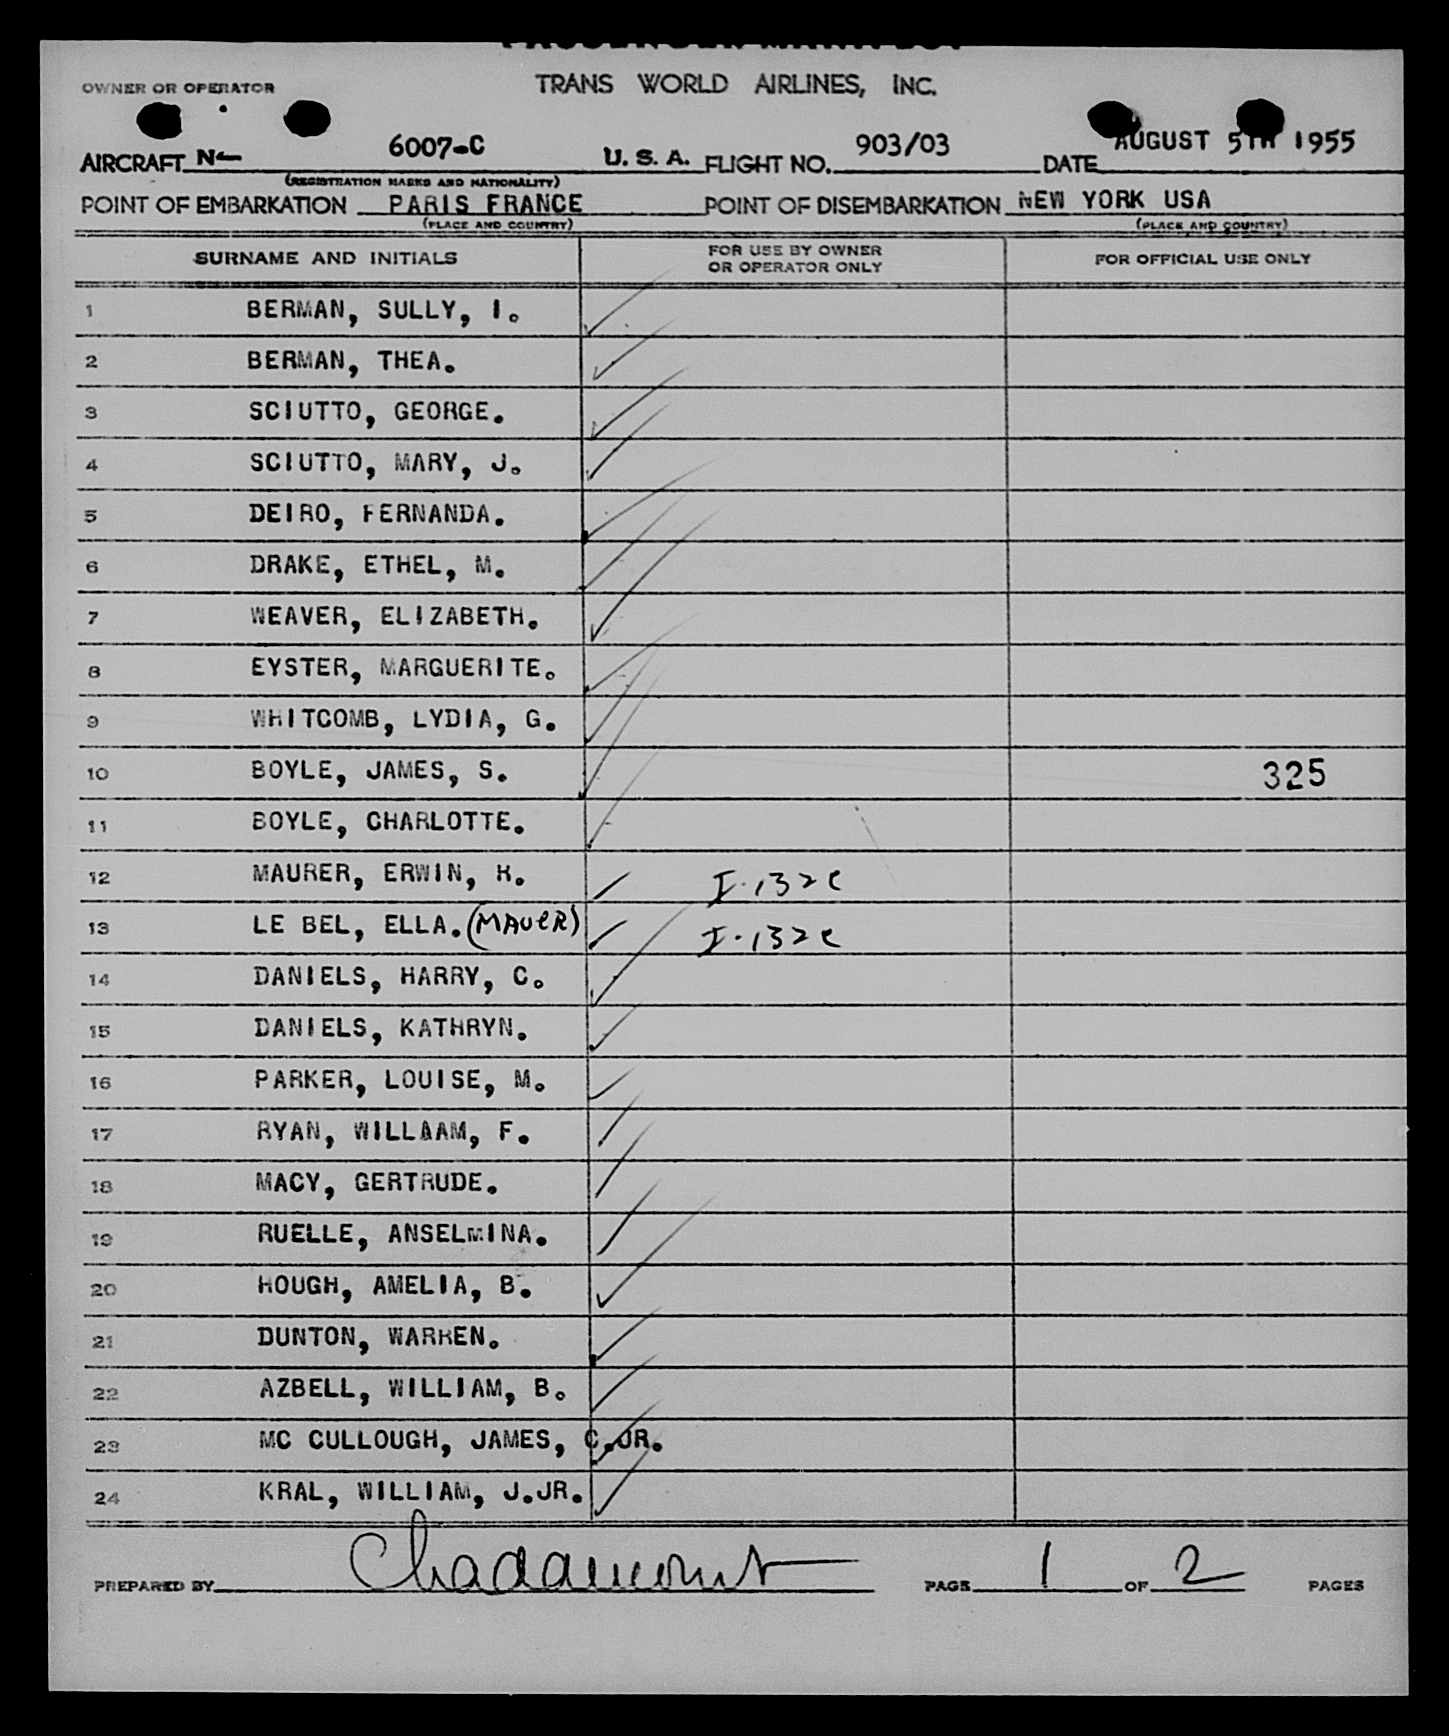 PASSENGER MANIFEST
TRANS WORLD AIRLINES, INC.
OWNER OR OPERATOR
AIRCRAFT N- 6007-C U. S. A. FLIGHT NO. 903/03 DATE AUGUST 5TH 1955
(REGISTRATION MARKS AND NATIONALITY)
POINT OF EMBARKATION PARIS FRANCE POINT OF DISEMBARKATION NEW YORK USA
(PLACE AND COUNTRY) (PLACE AND COUNTRY)
SURNAME AND INITIALS FOR USE BY OWNER OR OPERATOR ONLY FOR OFFICIAL USE ONLY
1 BERMAN, SULLY, I.
2 BERMAN, THEA.
3 SCIUTTO, GEORGE.
4 SCIUTTO, MARY, J.
5 DEIRO, FERNANDA.
6 DRAKE, ETHEL, M.
7 WEAVER, ELIZABETH.
8 EYSTER, MARGUERITE.
9 WHITCOMB, LYDIA, G.
10 BOYLE, JAMES, S. 325
11 BOYLE, CHARLOTTE.
12 MAURER, ERWIN, H. I-132e
13 LE BEL, ELLA. (MAUeR) I-132e
14 DANIELS, HARRY, C.
15 DANIELS, KATHRYN.
16 PARKER, LOUISE, M.
17 RYAN, WILLAAM, F.
18 MACY, GERTRUDE.
19 RUELLE, ANSELMINA.
20 HOUGH, AMELIA, B.
21 DUNTON, WARREN.
22 AZBELL, WILLIAM, B.
23 MC CULLOUGH, JAMES, C.JR.
24 KRAL, WILLIAM, J.JR.
PREPARED BY PAGE 1 OF 2 PAGES